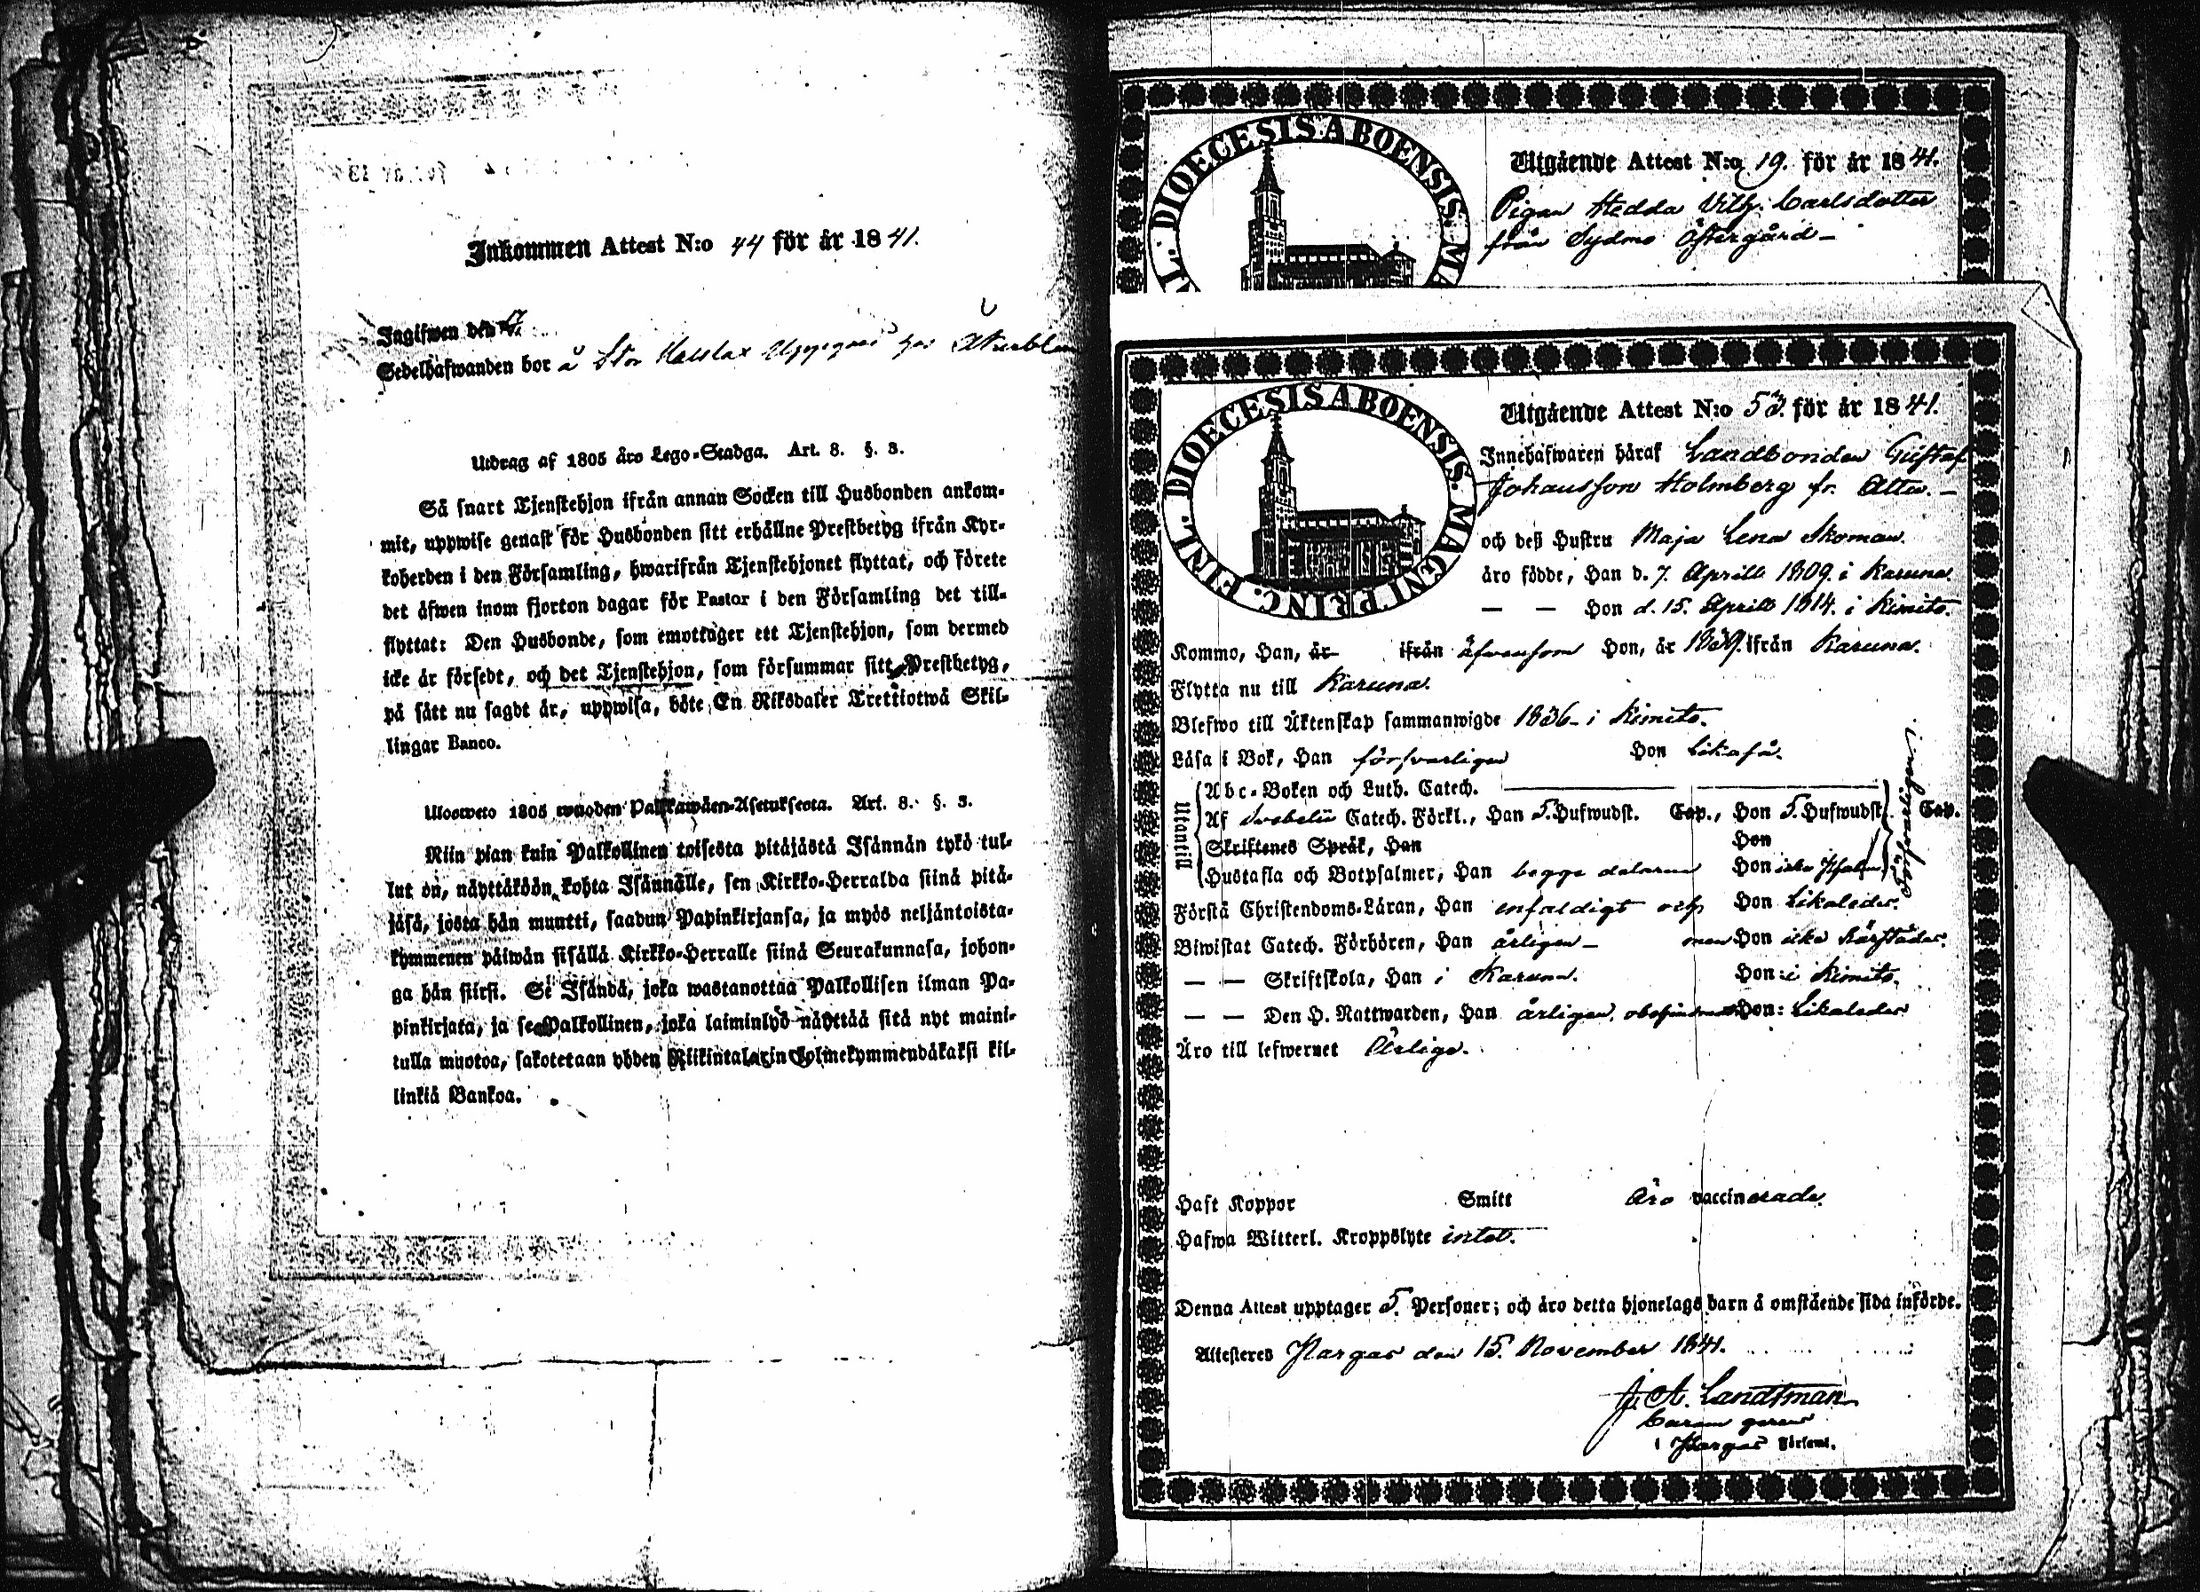 Inkommen Attest N:o 44 för år 1841.
Ingifwen den
Sedelhafwanden bor å Stor
Utdrag af 1805 års Lego-Stadga. Art. 8. §. 3.
Så snart Tjenstehjon ifrån annan Socken till Husbonden ankom-
mit, uppwise genast för Husbonden sitt erhållne Prestbetyg ifrån Kyr-
koherden i den Församling, hwarifrån Tjenstehjonet flyttat, och förete
det äfwen inom fjorton dagar för Pastor i den Församling det till-
flyttat: Den Husbonde, som emottager ett Tjenstehjon, som dermed
icke är försedt, och det Tjenstehjon, som försummar sitt Prestbetyg,
på sätt nu sagdt är, uppwisa, böte En Riksdaler Trettiotwå Skil-
lingar Banco.
Ulosweto 1805 wuoden Palkkawäen-Asetuksesta. Art. 8. §. 3.
Niin pian kuin Palkollinen toisesta pitäjästä Isännän tykö tul-
lut on, näyttäköön kohta Isännälle, sen Kirkko-Herralda siinä pitä-
jäsä, josta hän muutti, saadun Papinkirjansa, ja myös neljäntoista-
kymmenen päiwän sisällä Kirkko-Herralle siinä Seurakunnasa, johon-
ga hän siirsi. Se Isändä, joka wastanottaa Palkollisen ilman Pa-
pinkirjata, ja se Palkollinen, joka laiminlyö näyttää sitä nyt maini-
tulla muotoa, sakotetaan yhden Riikintalarin kolmekymmendäkaksi kil-
linkiä Bankoa.
DIOECESIS ABOENSIS
Utgående Attest N:o 19. för år 1841.
Pigan Hedda Vilh. Carlsdotter
från Sydmo Östergård –
DIOECESIS ABOENSIS. MAGNI PRINC. FINL.
Utgående Attest N:o 53. för år 1841.
Innehafwaren häraf Landbonden Gustaf
Johansson Holmberg fr. Attu. –
och deß Hustru Maja Lena Skoman.
äro födde, Han d. 7. Aprill 1809. i Karuna.
— — Hon d. 15. Aprill 1814. i Kimito.
Kommo, Han, är ifrån äfvensom Hon, år 1839. ifrån Karuna.
Flytta nu till Karuna.
Blefwo till Äktenskap sammanwigde 1836 – i Kimito.
Läsa i Bok, Han försvarligen Hon Likaså.
Utantill
Abc-Boken och Luth. Catech.
Af Svebelii Catech. Förkl., Han 5. Hufwudst. Cap., Hon 5. Hufwudst. Cap.
Skriftenes Språk, Han Hon
Hustafla och Botpsalmer, Han begge delarne Hon icke Psalm.
Försvarligen i
Förstå Christendoms-Läran, Han enfaldigt och Hon Likaledes.
Biwistat Catech. Förhören, Han årligen – men Hon icke härstädes.
— — Skriftskola, Han i Karuna. Hon: i Kimito.
— — Den H. Nattwarden, Han årligen, Hon: Likaledes
Äro till lefwernet Ärlige.
Haft Koppor Smitt Äro vaccinerade.
Hafwa Witterl. Kroppslyte intet.
Denna Attest upptager 5. Personer; och äro detta hjonelags barn å omstående sida införde.
Attesteres Pargas den 15. November 1841.
J. A. Landtman
Curam gerens
i Pargas Församl.